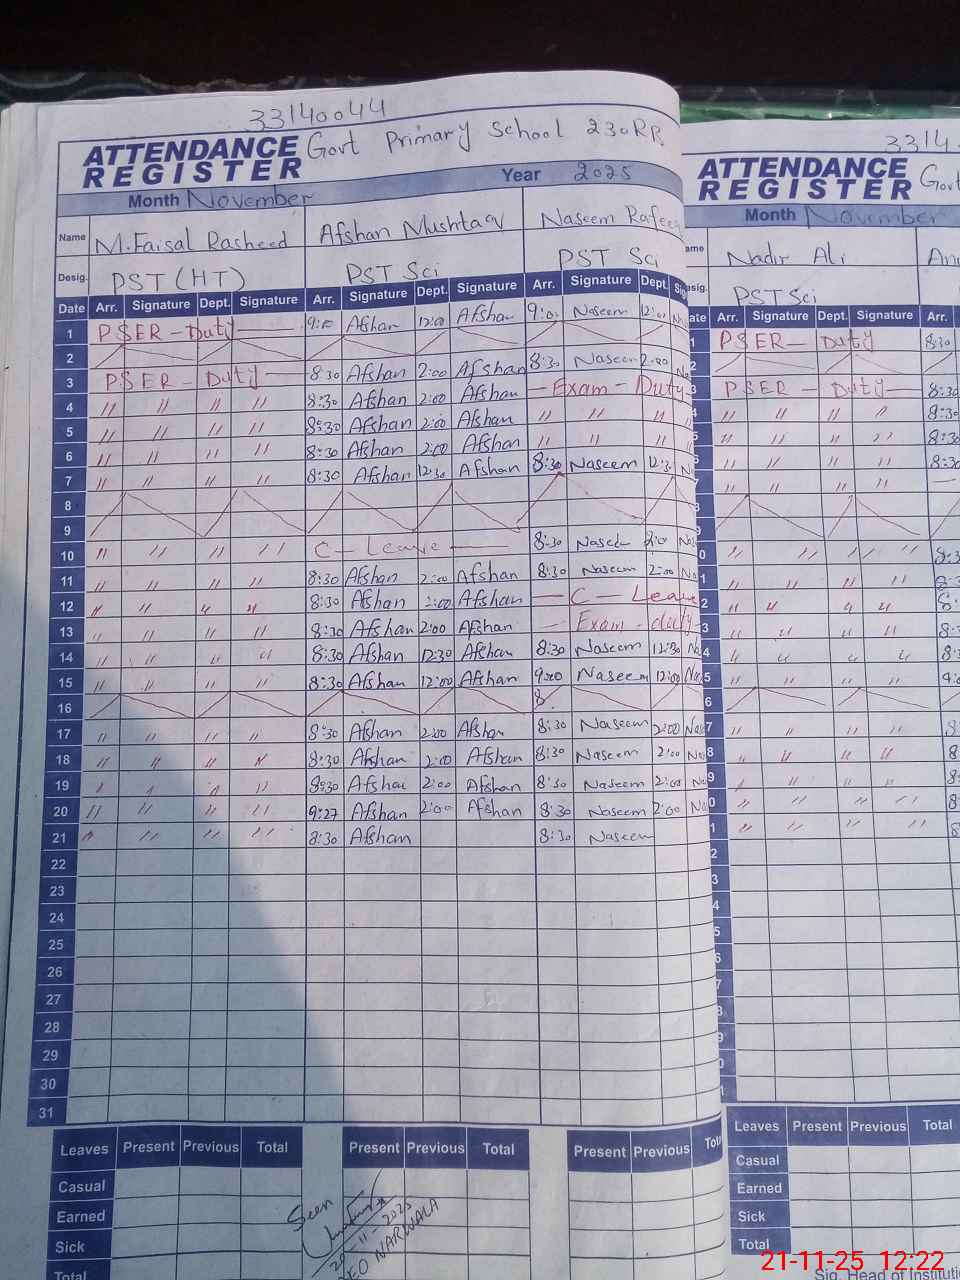 33140044
ATTENDANCE REGISTER Govt Primary School 230RB
Year 2025
Month November
Name M.Faisal Rasheed Afshan Mushtaq Naseem
Desig. PST (HT) PST Sci PST Sci
Date Arr. Signature Dept. Signature Arr. Signature Dept. Signature Arr. Signature Dept.
1 PSER - Duty Afshan 12:00 Afshan Naseem
2
3 PSER - Duty 8:30 Afshan 2:00 Afshan 8:30 Naseem 2:00
4 " " " " 8:30 Afshan 2:00 Afshan - Exam - Duty
5 " " " " 8:30 Afshan 2:00 Afshan " " " "
6 " " " " 8:30 Afshan 2:00 Afshan " " " "
7 " " " " 8:30 Afshan 12:30 Afshan 8:30 Naseem
8
9
10 " " " " C - Leave 8:30 Naseem 2:00
11 " " " " 8:30 Afshan 2:00 Afshan 8:30 Naseem 2:00
12 " " " " 8:30 Afshan 2:00 Afshan - C - Leave
13 " " " " 8:30 Afshan 2:00 Afshan - Exam - duty
14 " " " " 8:30 Afshan 12:30 Afshan 8:30 Naseem 12:30
15 " " " " 8:30 Afshan 12:00 Afshan 9:00 Naseem 12:00
16 8
17 " " " " 8:30 Afshan 2:00 Afshan 8:30 Naseem 2:00
18 " " " " 8:30 Afshan 2:00 Afshan 8:30 Naseem 2:00
19 " " " " 8:30 Afshan 2:00 Afshan 8:30 Naseem 2:00
20 " " " " 9:27 Afshan 2:00 Afshan 8:30 Naseem 2:00
21 " " " " 8:30 Afshan 8:30 Naseem
22
23
24
25
26
27
28
29
30
31
Leaves Present Previous Total Present Previous Total Present Previous
Casual
Earned
Sick
Total
Seen
NARWALA
3314
ATTENDANCE REGISTER Govt
Month November
Nadir Ali
PST Sci
Arr. Signature Dept. Signature Arr.
PSER - Duty 8:30
PSER - Duty 8:30
" " " " 8:30
" " " " 8:30
" " " " 8:30
" " " "
" " " "
" " " "
" " " "
" " " "
" " " "
" " " "
" " " "
" " " "
" " " "
" " " "
" " " "
Leaves Present Previous Total
Casual
Earned
Sick
Total
Sig. Head of
21-11-25 12:22